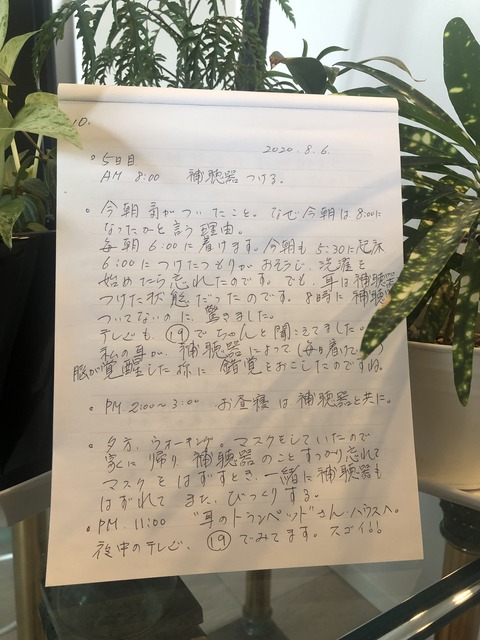 10.
2020.8.6.
。5日目
AM 8:00 補聴器つける。
。今朝気がついたこと。なぜ今朝は8:00に
なったかと言う理由。
毎朝6:00に着けます。今朝も5:30に起床
6:00につけたつもりがおそうじ、洗濯を
始めたら忘れたのです。でも、耳は補聴器
つけた状態だったのです。8時に補聴
ついてないのに、驚きました。
テレビも、⑲でちゃんと聞こえてました。
私の耳が、補聴器によって(毎日着けて
脳が覚醒した様に錯覚をおこしたのですね。
。PM 2:00~3:00 お昼寝は補聴器と共に。
。夕方、ウォーキング。マスクをしていたので
家に帰り補聴器のことすっかり忘れて
マスクをはずすとき、一緒に補聴器も
はずれてまた、びっくりする。
。PM. 11:00 "耳のトランペット"さん.ハウスへ。
夜中のテレビ、⑲でみてます。スゴイ!!